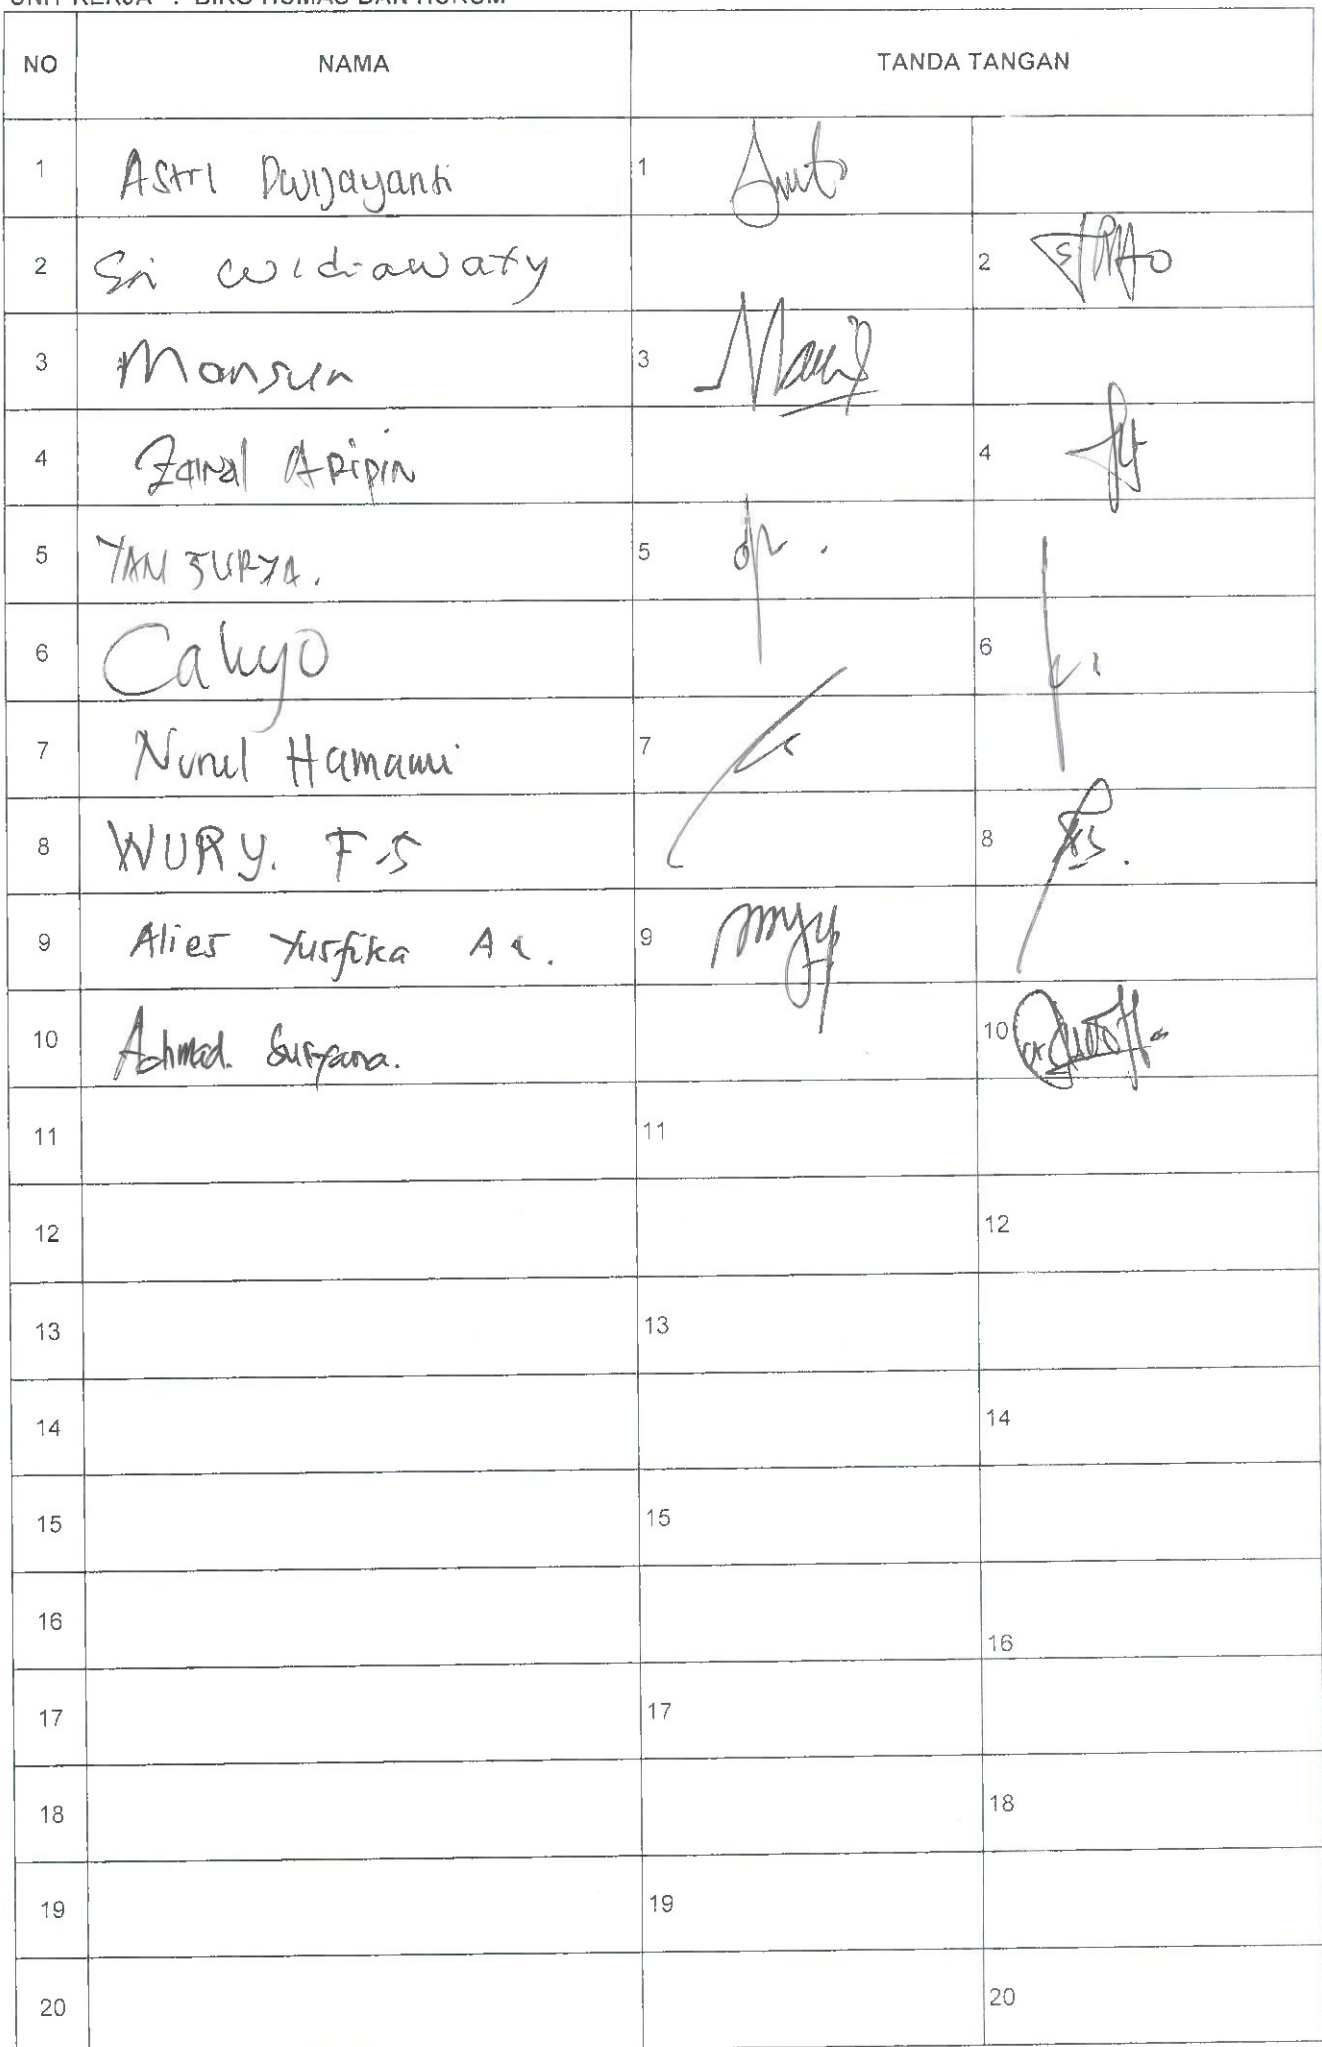 UNIT KERJA : BIRO HUMAS DAN HUKUM
NO NAMA TANDA TANGAN
1 Astri Dwijayanti 1
2 Sri Widiawaty 2
3 Mansur 3
4 Zainal Aripin 4
5 YAN SURYA. 5
6 Cahyo 6
7 Nurul Hamami 7
8 WURY. F.S 8
9 Alies Yusfika 9
10 Achmad. Suryana. 10
11 11
12 12
13 13
14 14
15 15
16 16
17 17
18 18
19 19
20 20